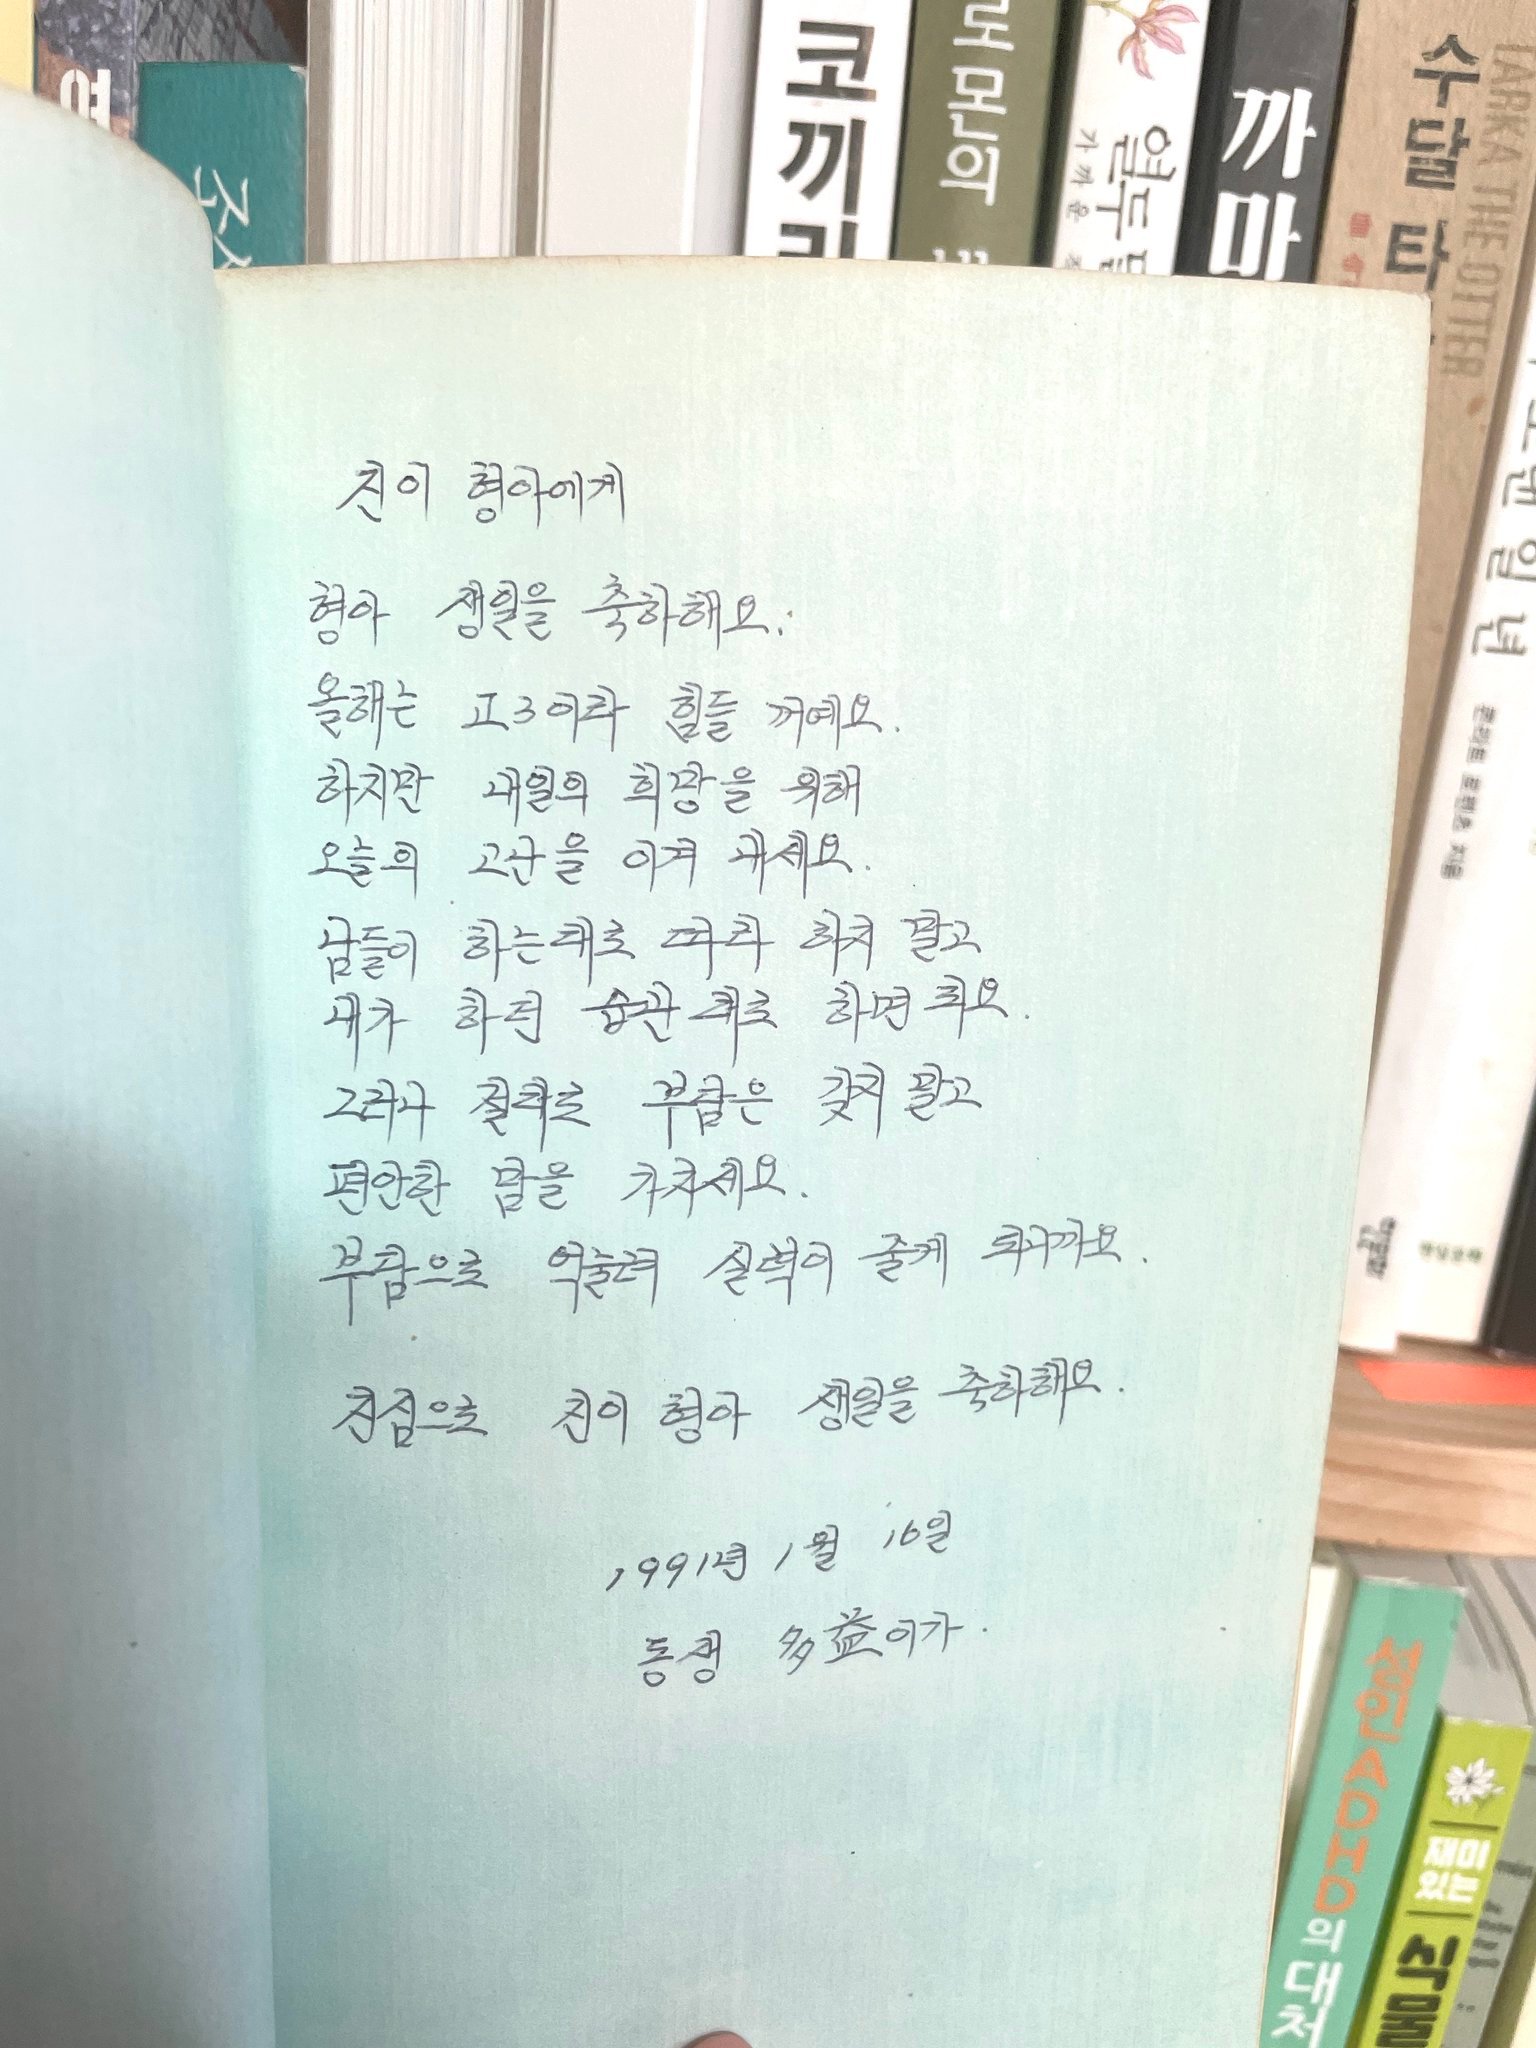 코끼
로몬의
열두
가까운
까마
수달 타
TARKA THE OTTER
일 년
진이 형아에게
형아 생일을 축하해요.
올해는 고3이라 힘들 꺼예요.
하지만 내일의 희망을 위해
오늘의 고난을 이겨 내세요.
남들이 하는대로 따라 하지 말고
내가 하던 습관대로 하면 되요.
그러나 절대로 부담은 갖지 말고
편안한 맘을 가지세요.
부담으로 억눌려 실력이 줄게 되니까요.
진심으로 진이 형아 생일을 축하해요.
1991년 1월 16일
동생 多益이가.
성인ADHD의 대처
재미있는
식물